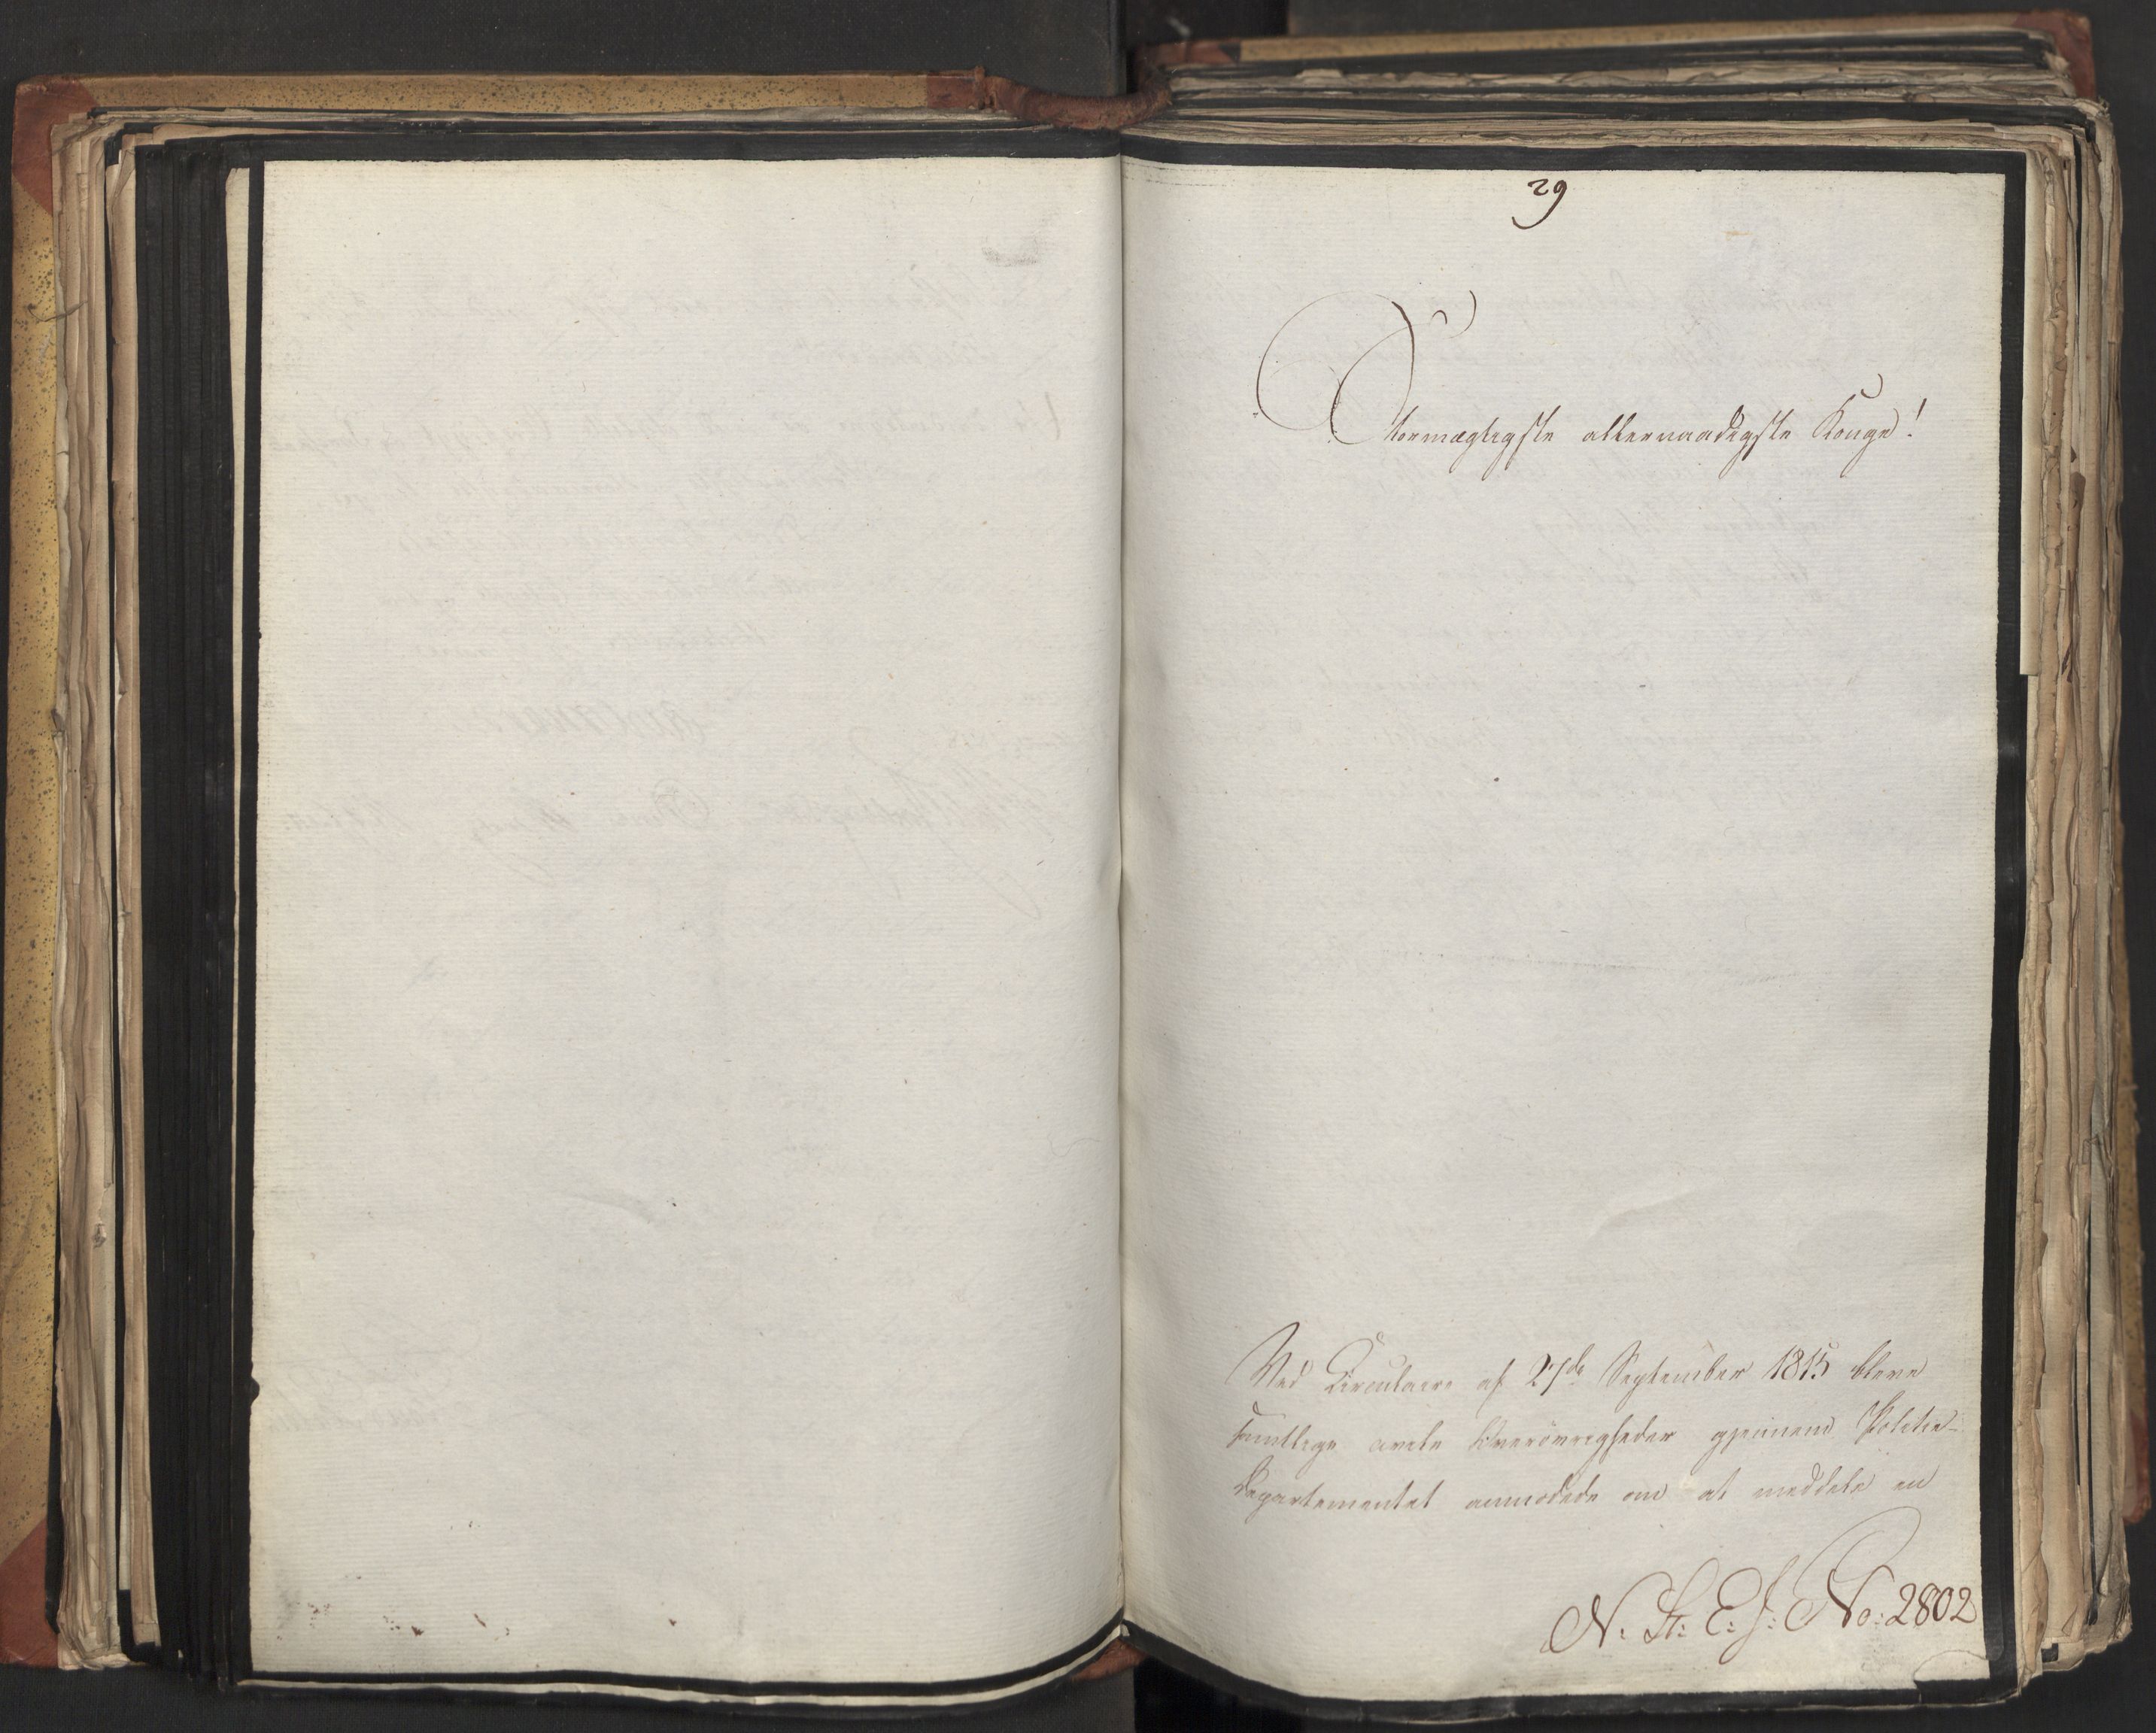 29
Stormægtigste allernaadigste Konge!
Ved Circulaire af 27de September 1815 bleve
samtlige civile Overövrigheder gjennem Politie-
Departementet anmodede om at meddele en
N. St: E: J: No: 2802